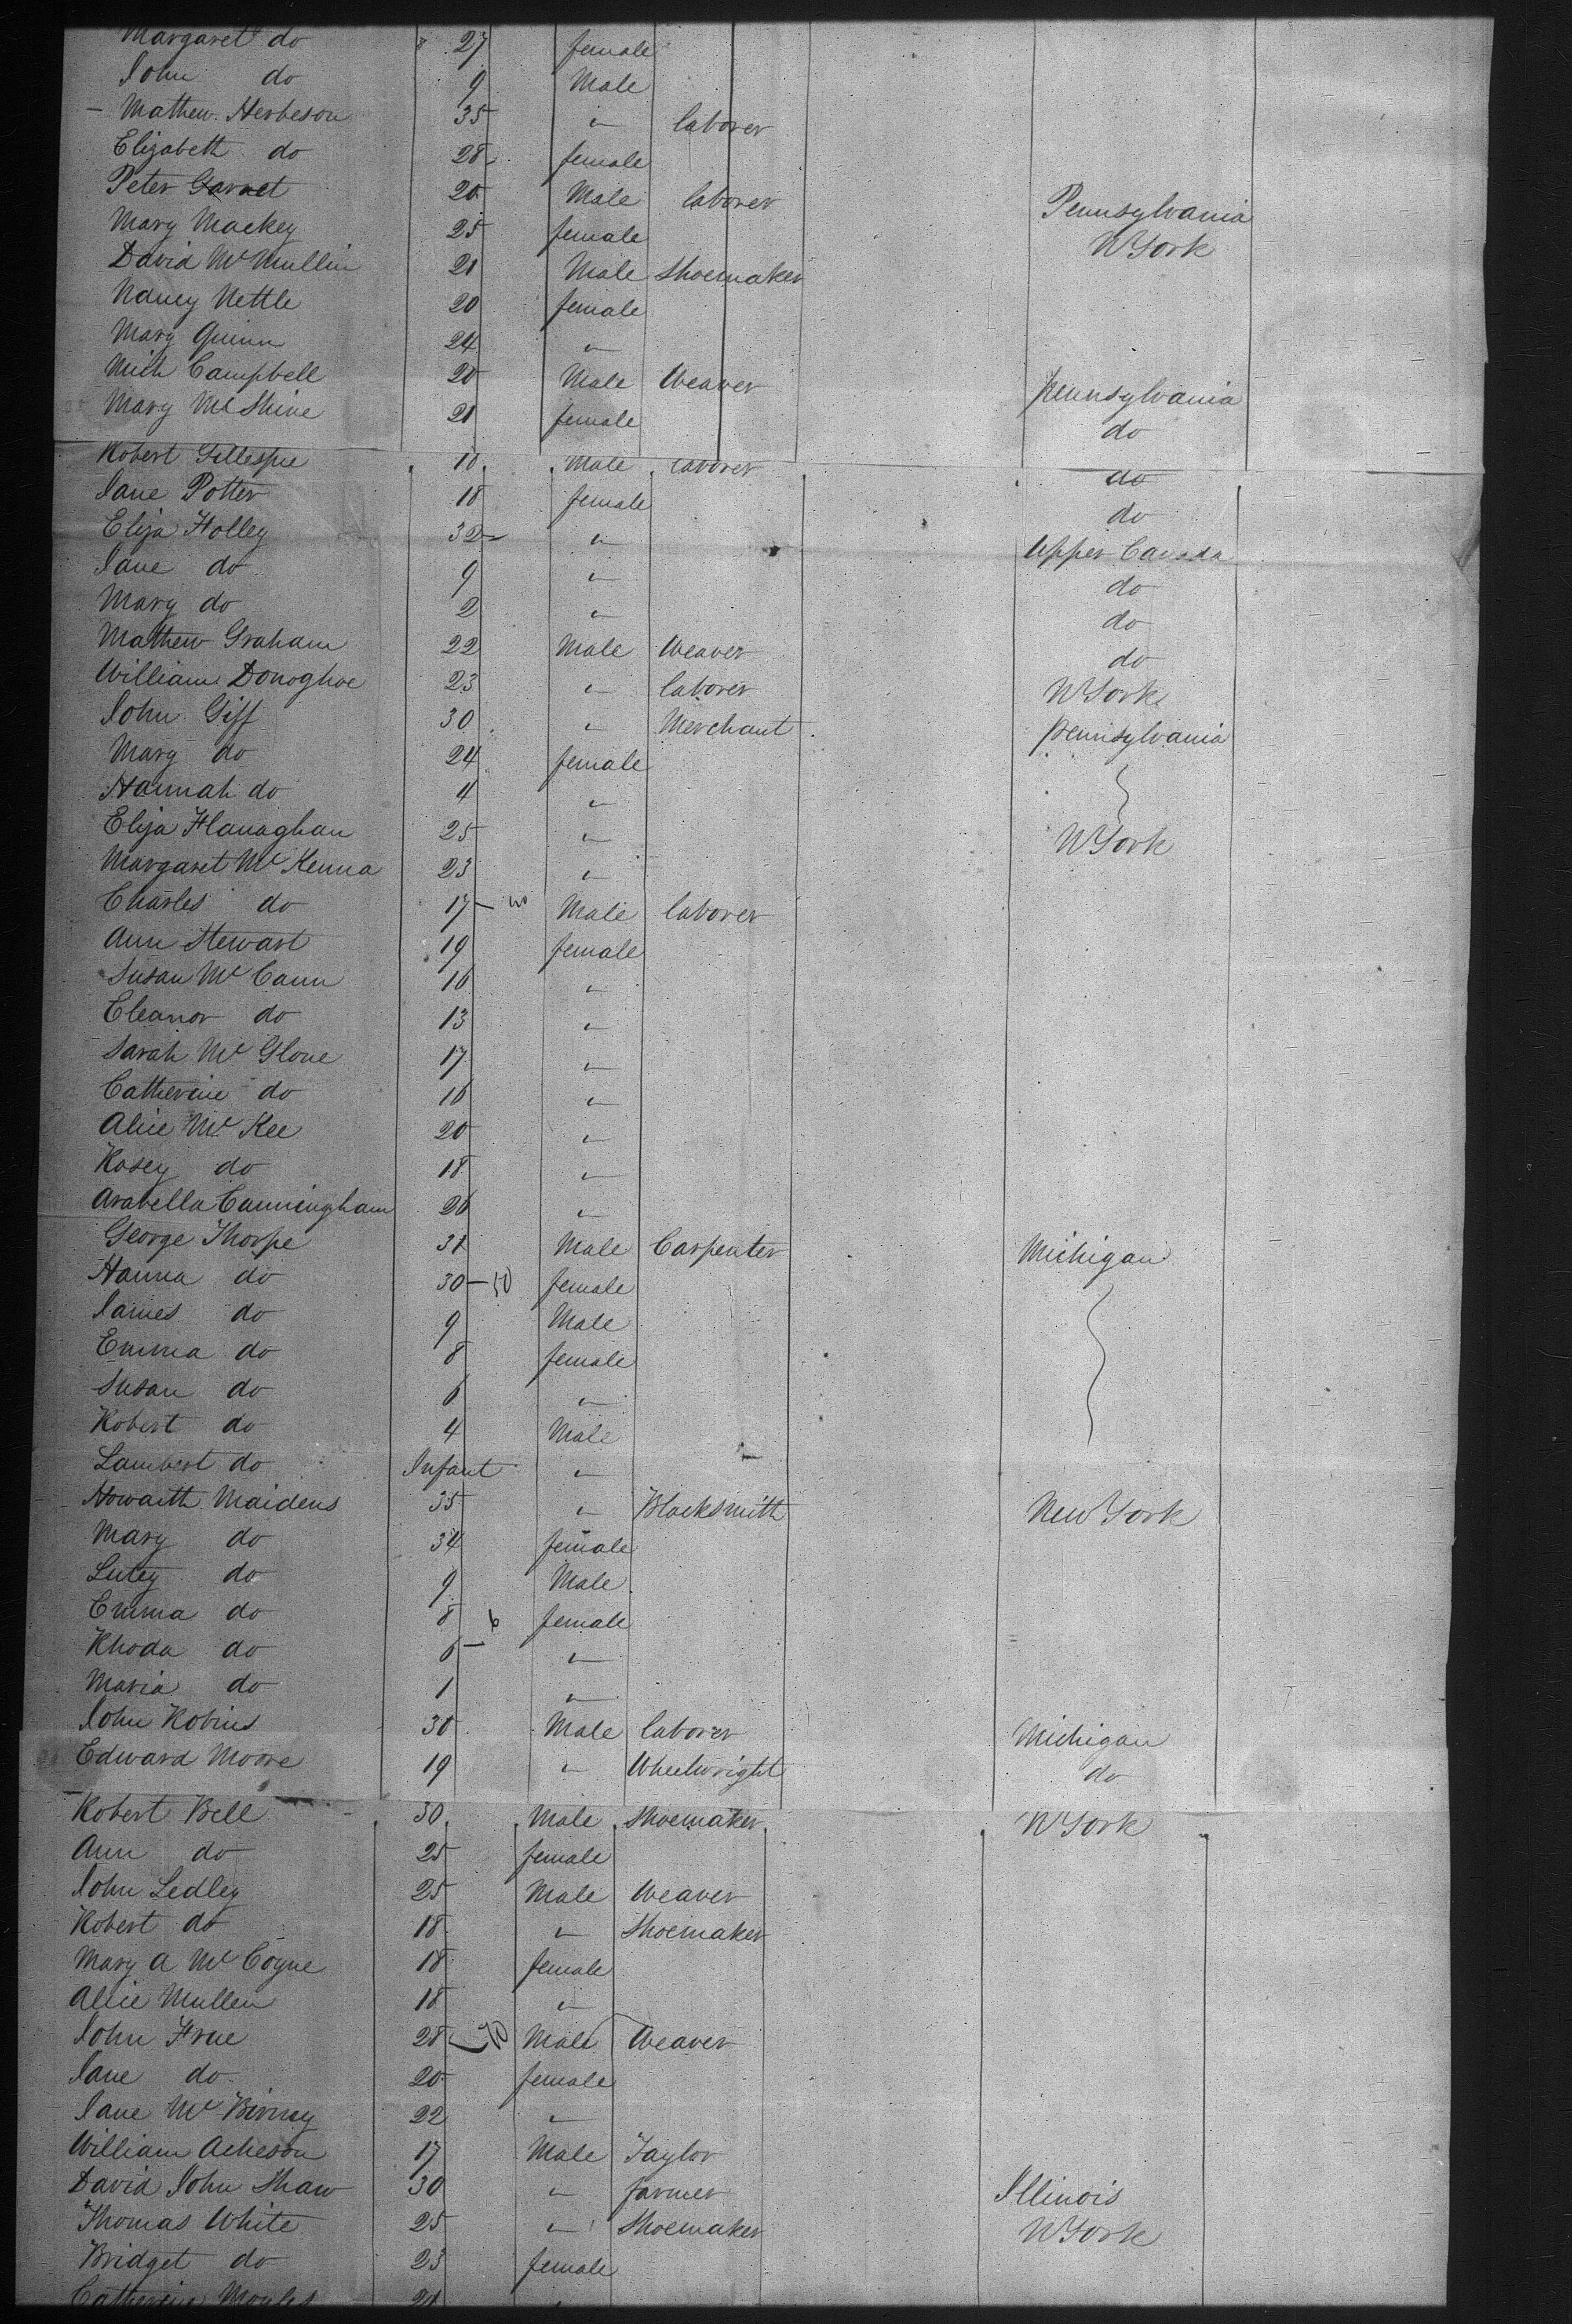 Margaret do 27 female
John do 9 Male
- Mathew Herbeson 35 " laborer
Elizabeth do 28 female
Peter Garnet 20 Male laborer Pennsylvania
Mary Mackey 25 female N York
David McMullin 21 Male Shoemaker
Nancy Nettle 20 female
Mary Quinn 24 "
Mich Campbell 20 Male Weaver Pennsylvania
Mary McShine 21 female do
Robert Gillespie 18 Male laborer do
Jane Potter 18 female do
Eliza Holley 32 " Upper Canada
Jane do 9 " do
Mary do 2 " do
Mathew Graham 22 Male Weaver do
William Donoghoe 23 " laborer N York
John Giff 30 " Merchant Pennsylvania
Mary do 24 female
Hannah do 4 "
Eliza Flanaghan 25 " N York
Margaret McKenna 23 "
Charles do 17 - Male laborer
Ann Stewart 19 female
Susan McCann 16 "
Eleanor do 13 "
Sarah McGlone 17 "
Catherine do 16 "
Alice McKee 20 "
Rosey do 18 "
Arabella Cunningham 26 "
George Thorpe 31 Male Carpenter Michigan
Hanna do 30 - 50 female
James do 9 Male
Emma do 8 female
Susan do 6 "
Robert do 4 Male
Lambert do Infant "
Howarth Maidens 35 " Blacksmith New York
Mary do 34 female
Lutey do 9 Male
Emma do 8 female
Rhoda do 6 - 6 "
Maria do 1 "
John Robins 30 Male laborer Michigan
Edward Moore 19 " Wheelwright do
- Robert Bell 30 Male Shoemaker N York
Ann do 25 female
John Ledley 25 Male Weaver
Robert do 18 " Shoemaker
Mary A McCoyne 18 female
Alice Mullen 18 "
John Frue 28 70 Male Weaver
Jane do 20 female
Jane McBirney 22 "
William Acheson 17 Male Taylor
David John Shaw 30 " farmer Illinois
Thomas White 25 " Shoemaker N York
Bridget do 23 female
Catherine